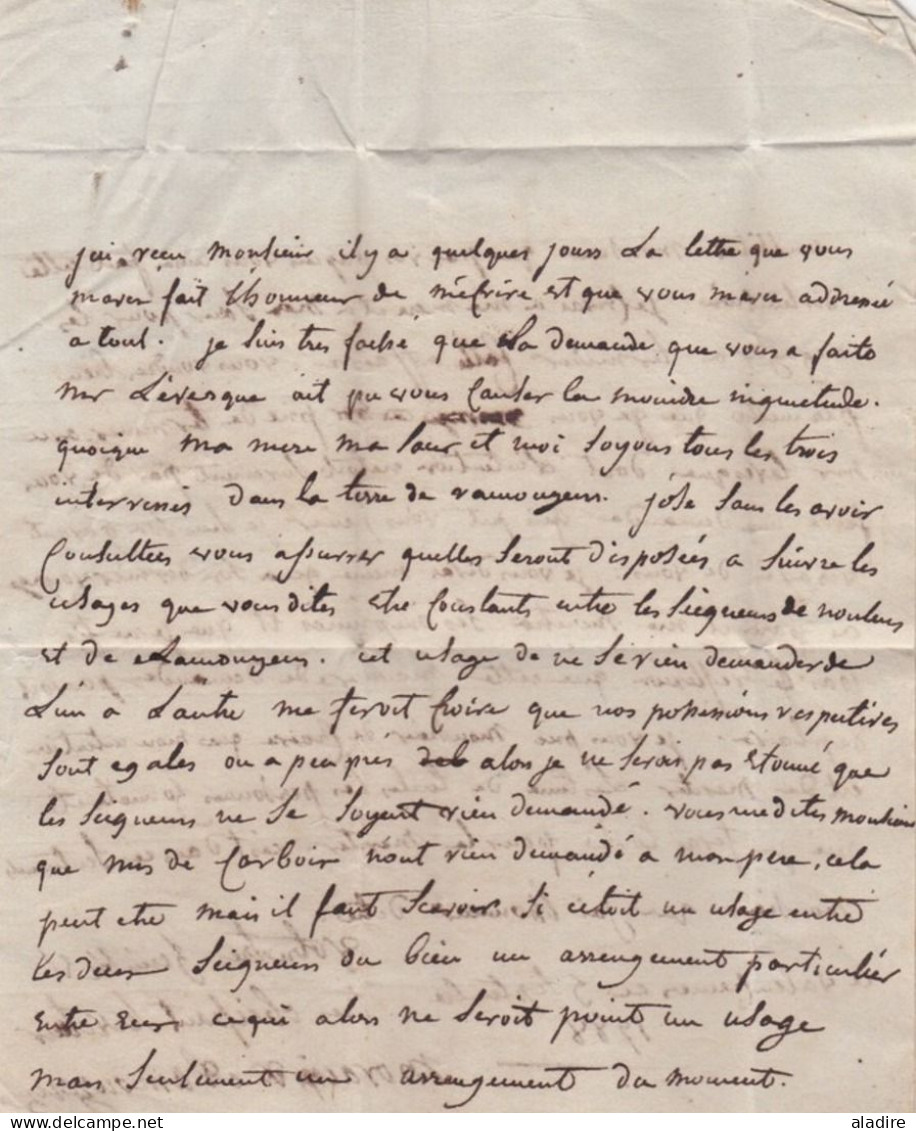 jai recu monsieur il y a quelques jours La lettre que vous
mavés fait l'honneur de m'ecrire et que vous mavés addressé
a toul. je suis tres faché que la demande que vous a faite
mr L'évesque ait pu vous Causer la moindre inquietude.
quoique ma mere ma sœur et moi soyons tous les trois
interressés dans la terre de ramouzens. j'ose sans les avoir
Consultées vous assurrer quelles seront disposées a suivre les
usages que vous dites etre Constants entre les seigneurs de noulens
et de Lamouzens. cet usage de ne se rien demander de
L'un a L'autre me feroit Croire que nos possessions respectives
sont egales ou a peu près alors je ne serois pas etonné que
les seigneurs ne se soyent rien demandé. vous me dites monsieur
que mrs de Carboir n'ont rien demandé a mon pere, cela
peut etre mais il faut scavoir si c'étoit un usage entre
Les deux seigneurs ou bien un arrengement particulier
entre eux ce qui alors ne seroit point un usage
mais seulement un arrengement du moment.
aladire